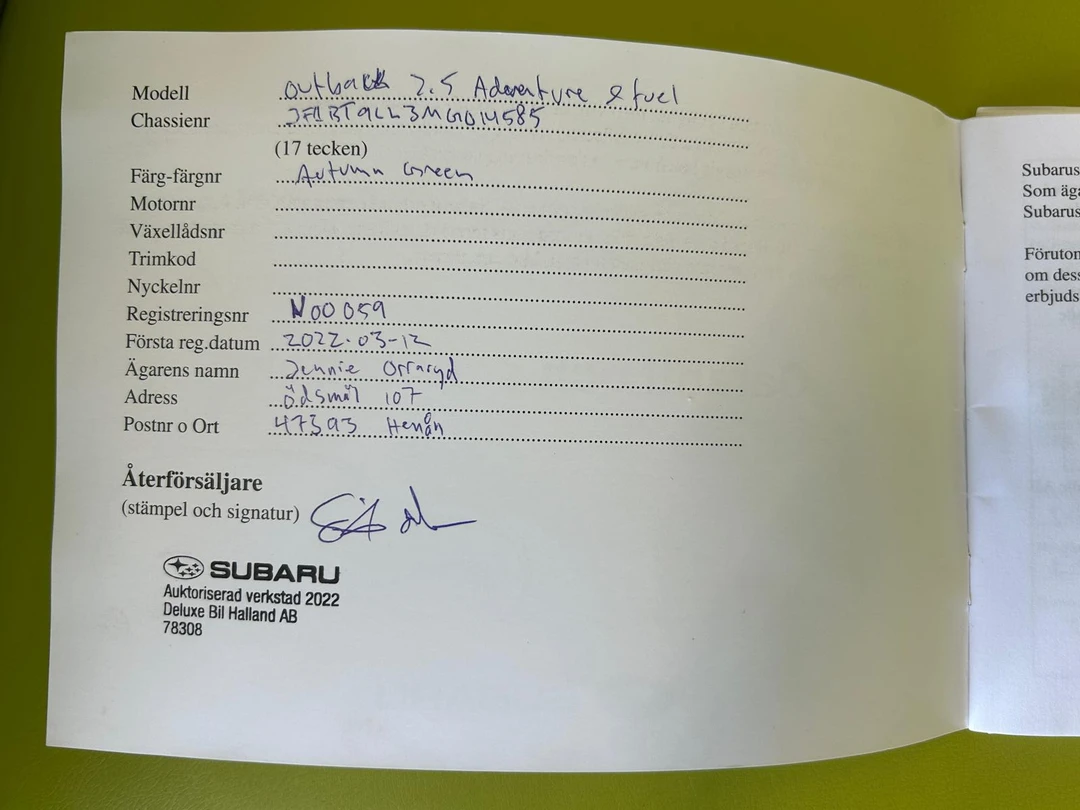 Modell outback 2.5 Adventure efuel
Chassienr JF1BT9LL3MG014585
(17 tecken)
Färg-färgnr Autumn Green
Motornr
Växellådsnr
Trimkod
Nyckelnr
Registreringsnr N00 059
Första reg.datum 2022-03-12
Ägarens namn Jennie
Adress Ödsmål 107
Postnr o Ort 47393 Henån
Återförsäljare
(stämpel och signatur)
SUBARU
Auktoriserad verkstad 2022
Deluxe Bil Halland AB
78308
Subarus
Som äga
Subarus
Förutom
om dess
erbjuds